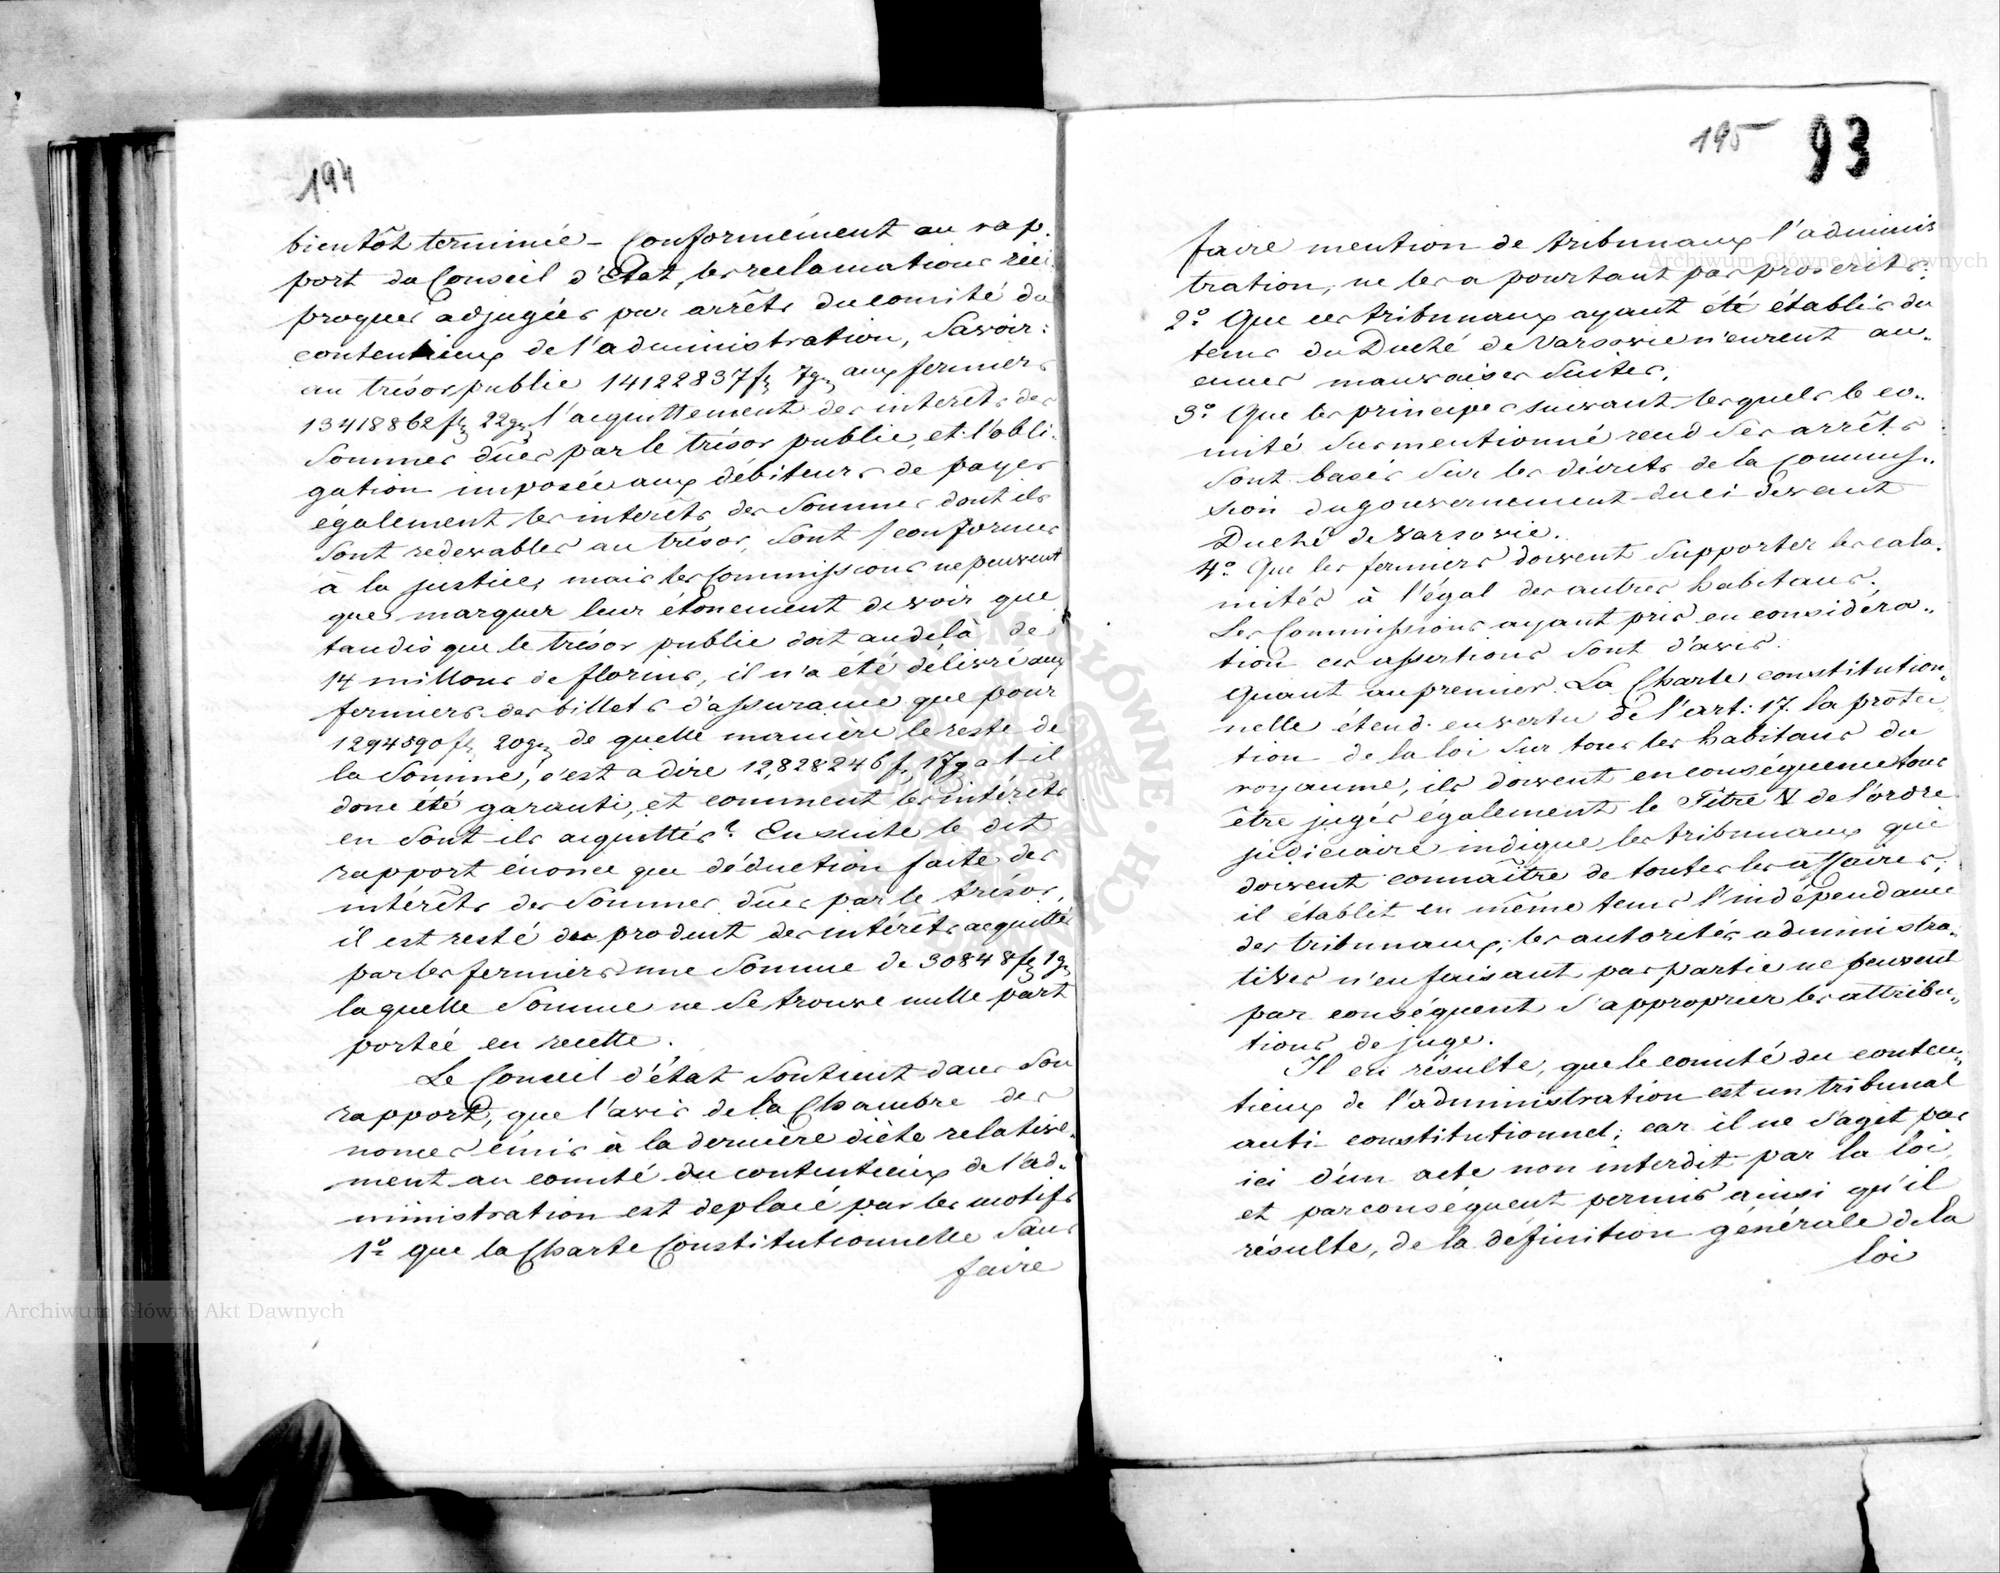 194
bientôt terminée - Conformément au rap.
port du Conseil d'Etat, les reclamations réci
proques adjugées par arrêts du comité du
contentieux de l'administration, Savoir:
au trésor public 14122837 fl 7 gr aux fermiers
13418862 fl 22 gr l'acquittement des interêts des
Sommes dûes par le trésor public, et l'obli.
gation imposée aux débiteurs de payer
également les interêts des Sommes dont ils
Sont redevables au trésor, Sont conformes
à la justice, mais les Commissions ne peuvent
que marquer leur étonement de voir que
tandis que le trésor public doit au delà de
14 millons de florins, il n'a été délivré aux
fermiers des billets d'assurance que pour
1294590 fl 20 gr de quelle manière le reste de
la Somme, c'est a dire 12,828246 f. 17 g a t-il
donc été garanti, et comment les intérêts
en Sont-ils acquittés? Ensuite le dit
rapport énonce que déduction faite des
intérêts des Sommes dûes par le trésor,
il est resté du produit des intérêts acquittés
par les fermiers une Somme de 30848 fl 1 gr
laquelle Somme ne Se trouve nulle part
portée en recette.
Le Conseil d'état Soutient dans Son
rapport, que l'avis de la Chambre des
nonces émis à la dernière diète relative.
ment au comité du contentieux de l'ad.
ministration est deplacé par les motifs
1º que la Charte Constitutionnelle Sans
faire
195 93
faire mention de tribunaux l'adminis
tration, ne les a pourtant pas proscrits;
2º Que ces tribunaux ayant été établis du
tems du Duché de Varsovie n'eurent au..
cunes mauvaises Suites.
3º Que les principes suivant lesquels le co..
mité Surmentionné rend Ses arrêts
Sont basés Sur les décrets de la Commis..
sion du gouvernement du ci devant
Duché de Varsovie.
4º Que les fermiers doivent Supporter les cala.
mités à l'égal des autres habitans.
Les Commissions ayant pris en considéra..
tion ces assertions Sont d'avis:
Quant au premier. La Charte constitution..
nelle étend en vertu de l'art: 17. la protec
tion de la loi Sur tous les habitans du
royaume, ils doivent en conséquence tous
être jugés également le Titre V de l'ordre
judiciaire indique les tribunaux qui
doivent connaître de toutes les affaires;
il établit en même tems l'indépendance
des tribunaux; les autorités administra..
tives n'en faisant pas partie ne peuvent
par conséquent S'approprier les attribu..
tions de juge.
Il en résulte, que le comité du conten..
tieux de l'administration est un tribunal
anti constitutionnel; car il ne S'agit pas
ici d'un acte non interdit par la loi,
et par conséquent permis ainsi qu'il
résulte, de la définition générale de la
loi
Archiwum Główne Akt Dawnych
Archiwum Główne Akt Dawnych